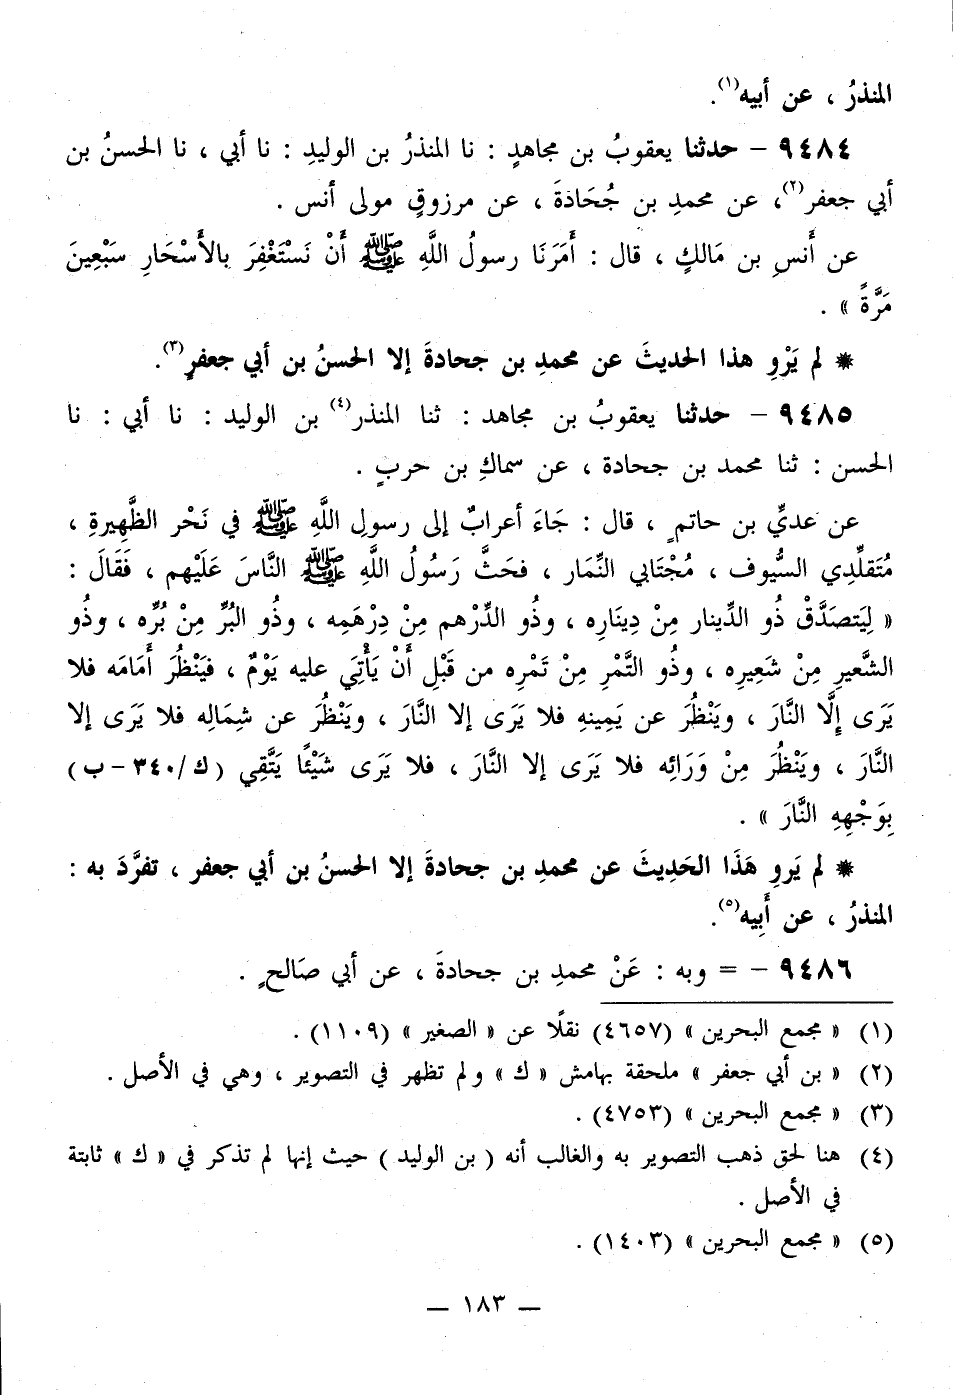 المنذرُ ، عن أبيه(١).
٩٤٨٤ – حدثنا يعقوبُ بن مجاهدٍ : نا المنذرُ بن الوليدِ : نا أبي ، نا الحسنُ بن
أبي جعفر(٢)، عن محمدِ بن جُحَادَةَ ، عن مرزوقٍ مولى أنس .
عن أَنسِ بن مَالكٍ ، قال : أَمَرَنَا رسولُ اللَّهِ ﷺ أَنْ نَسْتَغْفِرَ بالأَسْحَارِ سَبْعِينَ
مَرَّةً » .
* لم يَرْوِ هذا الحديثَ عن محمدِ بن جحادةَ إلا الحسنُ بن أبي جعفرٍ(٣).
٩٤٨٥ – حدثنا يعقوبُ بن مجاهد : ثنا المنذر(٤) بن الوليد : نا أبي : نا
الحسن : ثنا محمد بن جحادة ، عن سماكِ بن حربٍ .
عن عديِّ بن حاتمٍ ، قال : جَاءَ أعرابٌ إلى رسولِ اللَّهِ ﷺ في نَحْرِ الظَّهِيرةِ ،
مُتَقلِّدِي السيُّوف ، مُجْتَابي النِّمَار ، فحَثَّ رَسُولُ اللهِ ﷺ النَّاسَ عَلَيْهم ، فَقَالَ :
« لِيَتصَدَّقْ ذُو الدِّينار مِنْ دِينَارِه ، وذُو الدِّرْهم مِنْ دِرْهَمِه ، وذُو البُرِّ مِنْ بُرِّه ، وذُو
الشَّعيرِ مِنْ شَعِيرِه ، وذُو التَّمْرِ مِنْ تَمْرِه من قَبْلِ أَنْ يَأْتِيَ عليه يَوْمٌ ، فيَنْظُرَ أَمَامَه فلا
يَرَى إِلَّا النَّارَ ، ويَنْظُرَ عن يَمِينهِ فلا يَرَى إلا النَّارَ ، ويَنْظُرَ عن شِمَالِه فلا يَرَى إلا
النَّارَ ، ويَنْظُرَ مِنْ وَرَائِه فلا يَرَى إلا النَّارَ ، فلا يَرَى شَيْئًا يَتَّقِي (ك/٣٤٠-ب)
بِوَجْهِهِ النَّارَ » .
* لم يَروِ هَذَا الحَدِيثَ عن محمدِ بن جحادةَ إلا الحسنُ بن أبي جعفر ، تفرَّدَ به :
المنذرُ ، عن أَبِيه(٥).
٩٤٨٦ – = وبه : عَنْ محمدِ بن جحادةَ ، عن أبي صَالحٍ .
(١) « مجمع البحرين » (٤٦٥٧) نقلًا عن « الصغير » (١١٠٩) .
(٢) « بن أبي جعفر » ملحقة بهامش « ك » ولم تظهر في التصوير ، وهي في الأصل .
(٣) « مجمع البحرين » (٤٧٥٣) .
(٤) هنا لحق ذهب التصوير به والغالب أنه ( بن الوليد ) حيث إنها لم تذكر في « ك » ثابتة
في الأصل .
(٥) « مجمع البحرين » (١٤٠٣) .
— ١٨٣ —